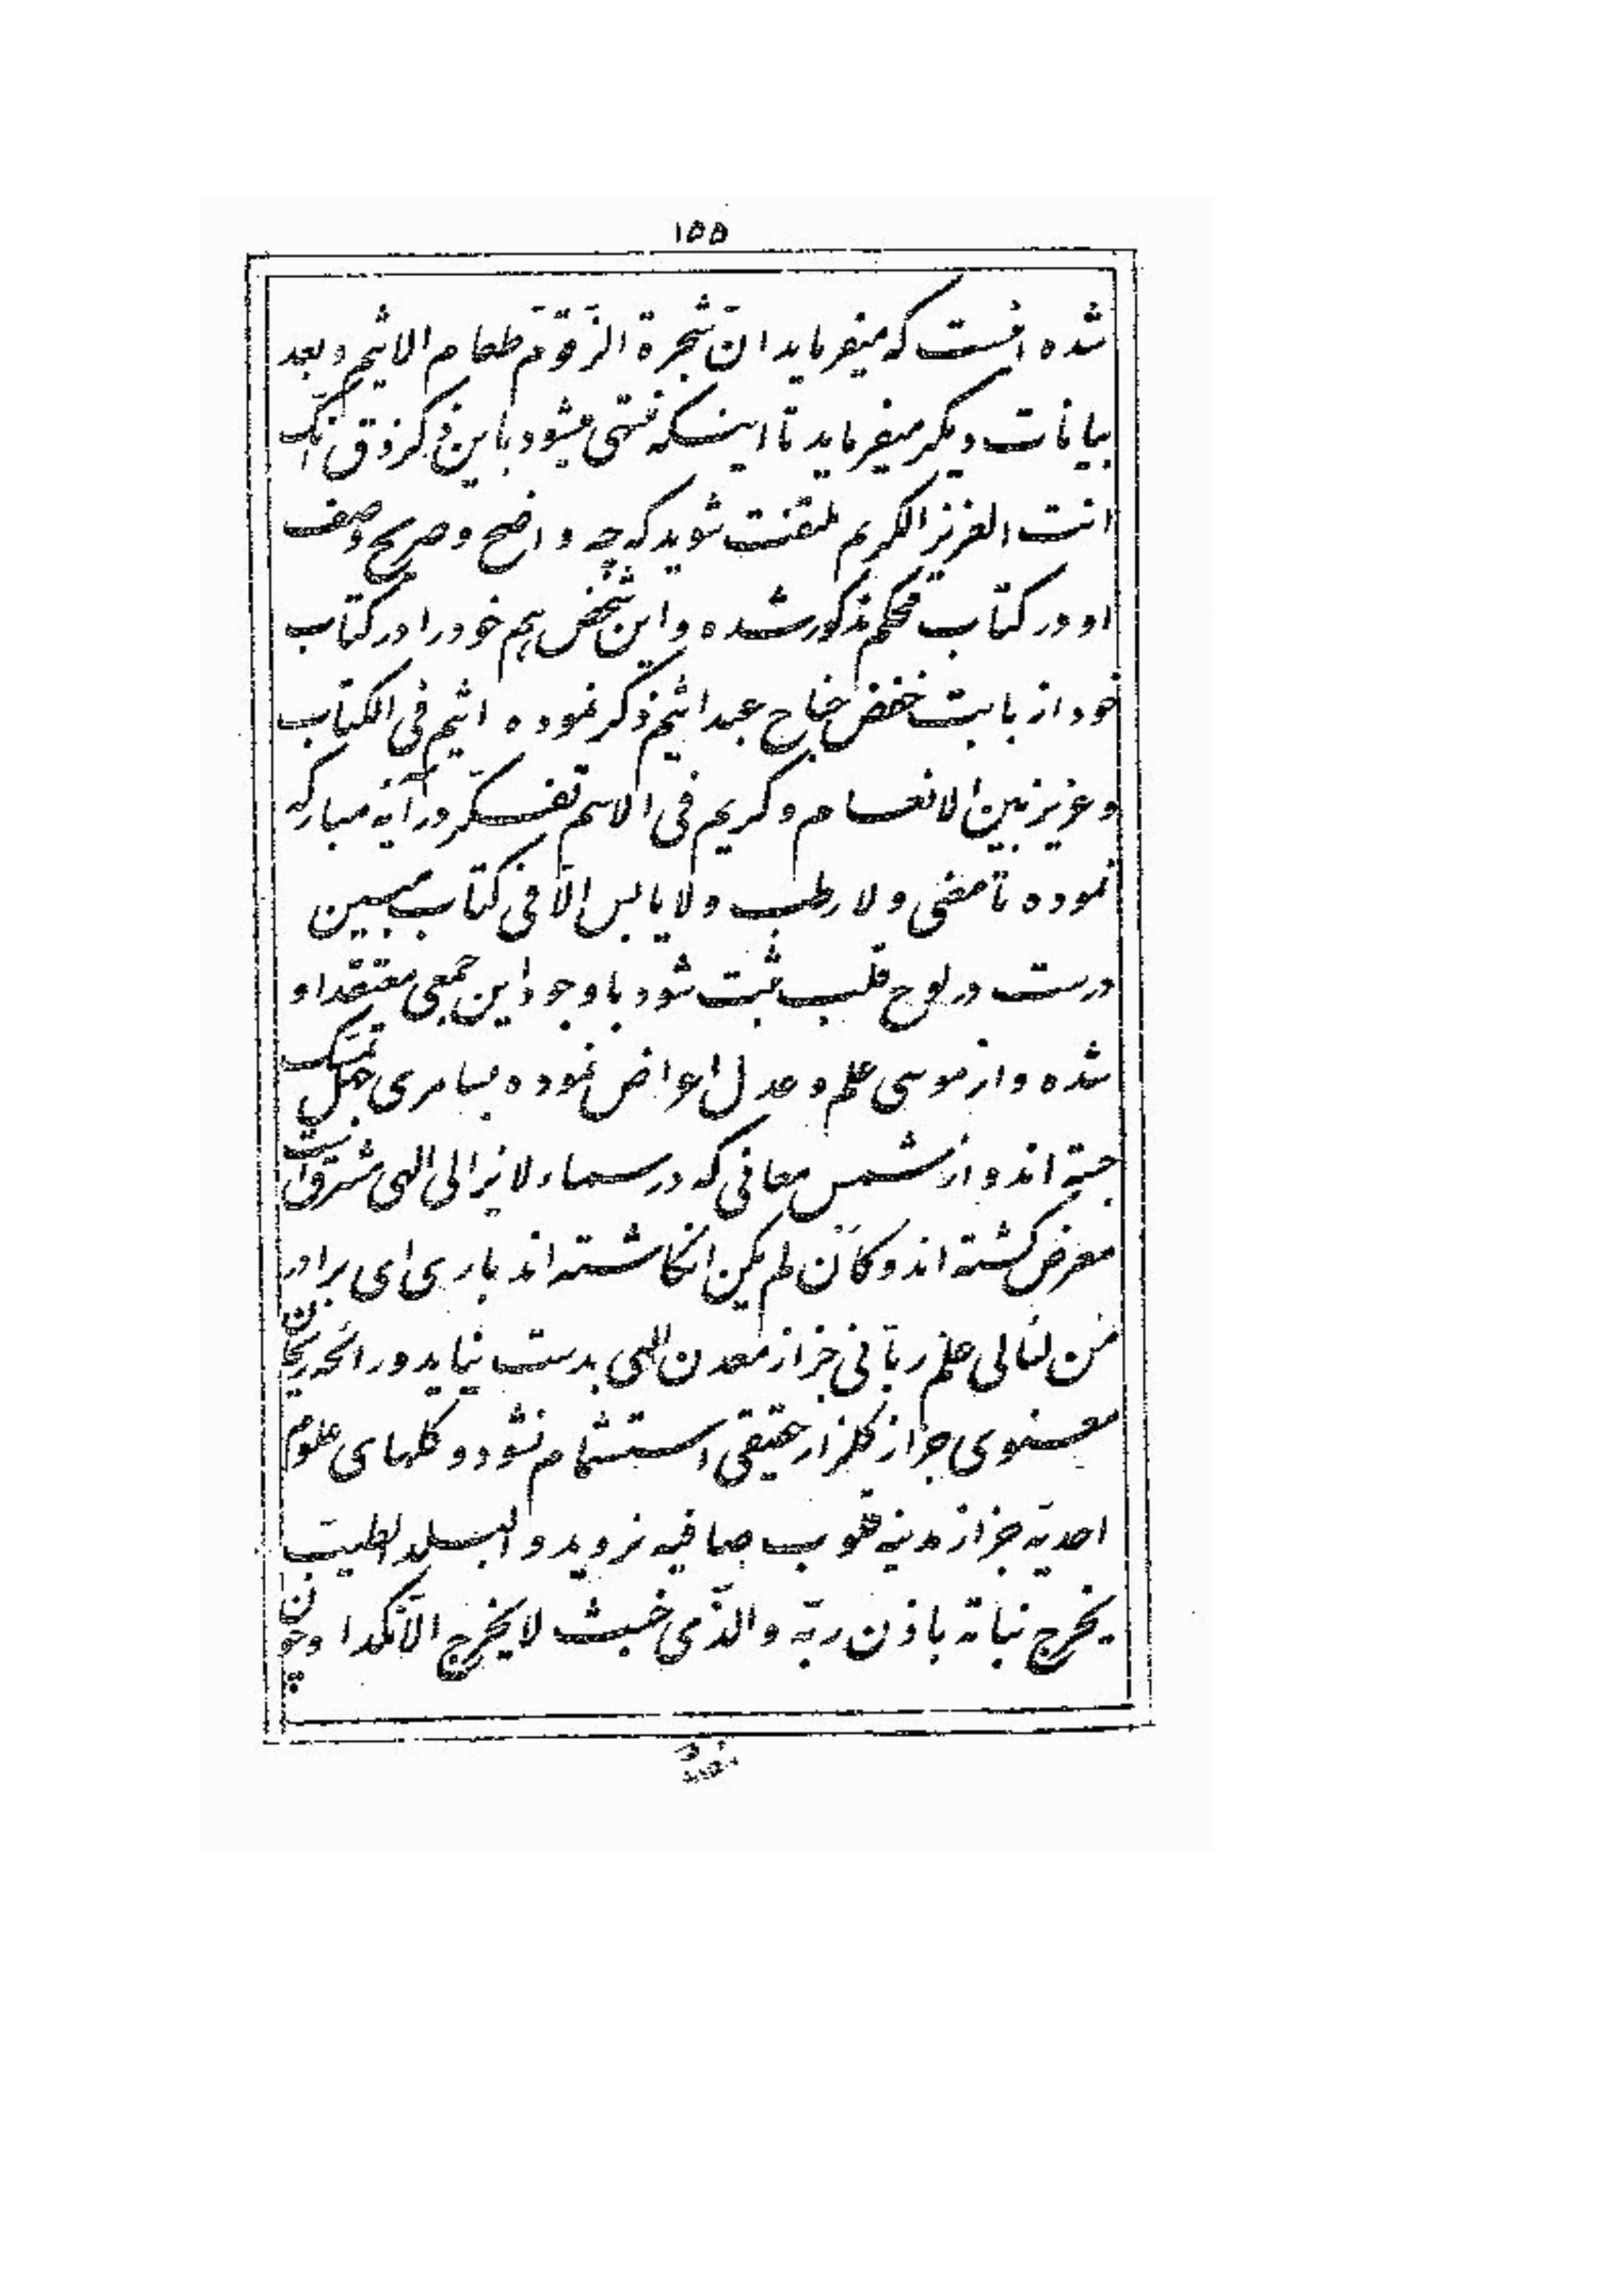 ۱۵۵
شده اینست که میفرماید انّ شجرة الزّقّوم طعام الاثیم و بعد
بیانات دیگر میفرماید تا اینکه منتهی میشود باین ذکر ذق انّک
انت العزیز الکریم ملتفت شوید که چه واضح و صریح وصف
او در کتاب محکم مذکور شده و این شخص هم خود را در کتاب
خود از بابت خفض جناح عبد اثیم ذکر نموده اثیم فی الکتاب
و عزیز بین الانعام و کریم فی الاسم تفکّر در آیه مبارکه
نموده تا معنی و لا رطب و لا یابس الّا فی کتاب مبین
درست در لوح قلب ثبت شود با وجود این جمعی معتقد او
شده و از موسی علم و عدل اعراض نموده بسامری جهل تمسّک
جسته اند و از شمس معانی که در سماء لا یزالی الهی مشرق است
معرض گشته اند و کأن لم یکن انگاشته اند باری ای برادر
من لئالی علم ربّانی جز از معدن الهی بدست نیاید و رائحه ریحان
معنوی جز از گلزار حقیقی استشمام نشود و گلهای علوم
احدیّه جز از مدینه قلوب صافیه نروید و البلد الطیّب
یخرج نباته باذن ربّه و الّذی خبث لا یخرج الّا نکدا و چون